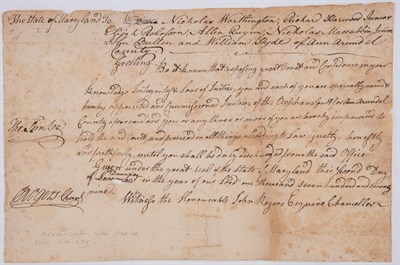 The State of Maryland To Nicholas Worthington, Richard Harwood Junior
Elijah Robosson, Allen Quynn, Nicholas Maccubbin Junior
John Bullen and William Hyde of Ann Arundel
County
Greeting Be it known that reposing great Trust and Confidence in your
Knowledge Integrity & Love of Justice, you and each of you are specially and
hereby appointed and Commissioned Justices of the Orphans Court for Ann Arundel
County aforesaid and you or any three or more of you are hereby impowered to
hold the said Court, and proceed in all things according to Law justly, honestly
and faithfully, until you shall be duly discharged from the said Office
Tho Sim Lee
Given under the great Seal of the State of Maryland this Second Day
of in the year of our Lord one thousand seven hundred and
nine.
Witness the Honourable John Rogers Esquire Chancellor
J Rogers Chan